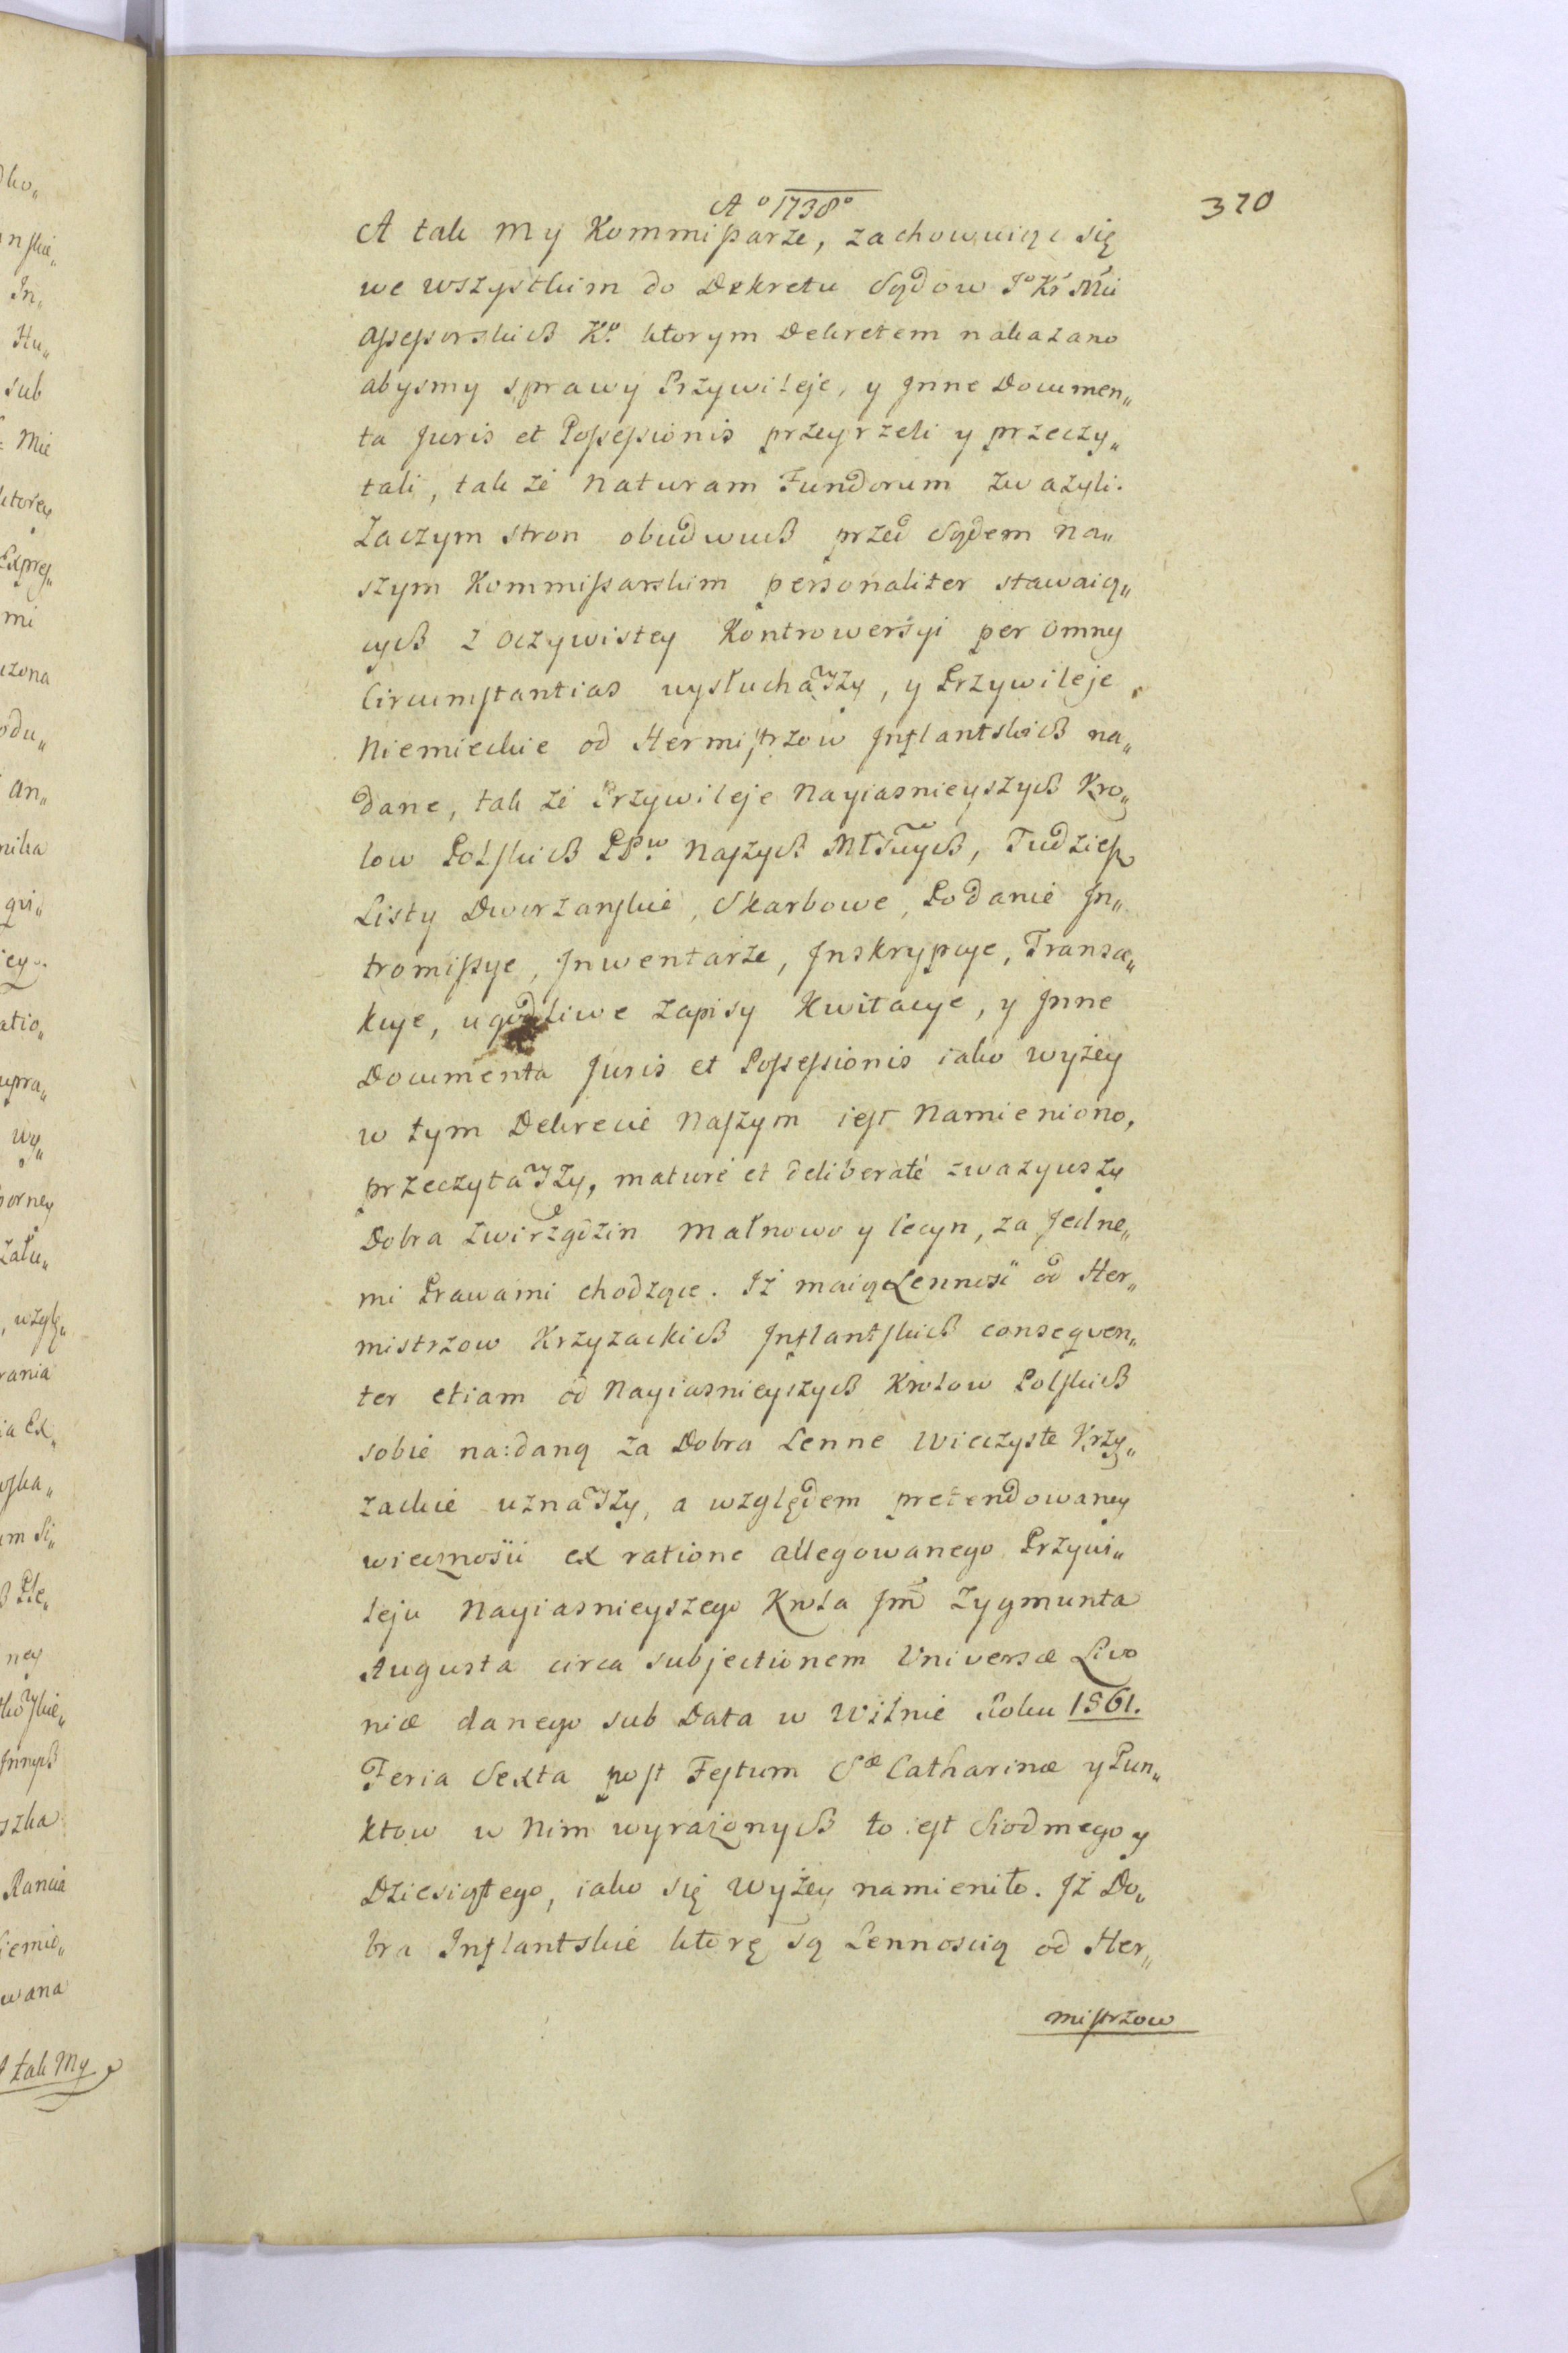 Aº 1738º
370
A tak My Kommissarze, zachowuiąc się
we wszystkim do Dekretu Sądow Jº Kr Mći
Assessorskich Kº ktorym Dekretem nakazano
abysmy sprawy Przywileje, y Jnne Documen„
ta Juris et Possessionis przeyrzeli y przeczy„
tali, tak że Naturam Fundorum zważyli.
Zaczym stron obudwuch przed Sądem na„
szym Kommissarskim personaliter stawaią„
cych z oczywistey Kontrowersyi per omnes
Circumstantias wysłuchawszy, y Przywileje
Niemieckie od Hermistrzow Jnflantskich na„
dane, tak że Przywileje Nayiasnieyszych Kro„
low Polskich PPw Naszych Młśćwych, Tudziesz
Listy Dworzanskie, Skarbowe, Podanie Jn„
tromissye, Jnwentarze, Jnskrypcye, Transa„
kcye, ugodliwe zapisy Kwitacye, y Jnne
Documenta Juris et Possessionis iako wyżey
w tym Dekrecie Naszym iest Namieniono,
przeczytawszy, maturé et deliberaté zwazywszy
Dobra Zwirzgdzin Małnowo y Cecyn, za Jedne„
mi Prawami chodzące. Jż maiąc Lenność od Her„
mistrzow Krzyzackich Jnflantskich conseqven„
ter etiam od Nayiasnieyszych Krolow Polskich
sobie na:daną za Dobra Lenne Wieczyste Krzy„
zackie uznawszy, a względem pretendowaney
wiecznośći ex ratione allegowanego Przywi„
leju Nayiasnieyszego Krola Jmć Zygmunta
Augusta circa subjectionem Universæ Livo
niæ danego sub Data w Wilnie Roku 1561.
Feria Sexta post Festum Sæ Catharinæ y Pun„
ktow w Nim wyrażonych to iest Siodmego y
Dziesiątego, iako się wyżey namieniło. Jż Do„
bra Jnflantskie ktorę są Lennoscią od Her„
mistrzow
tak My